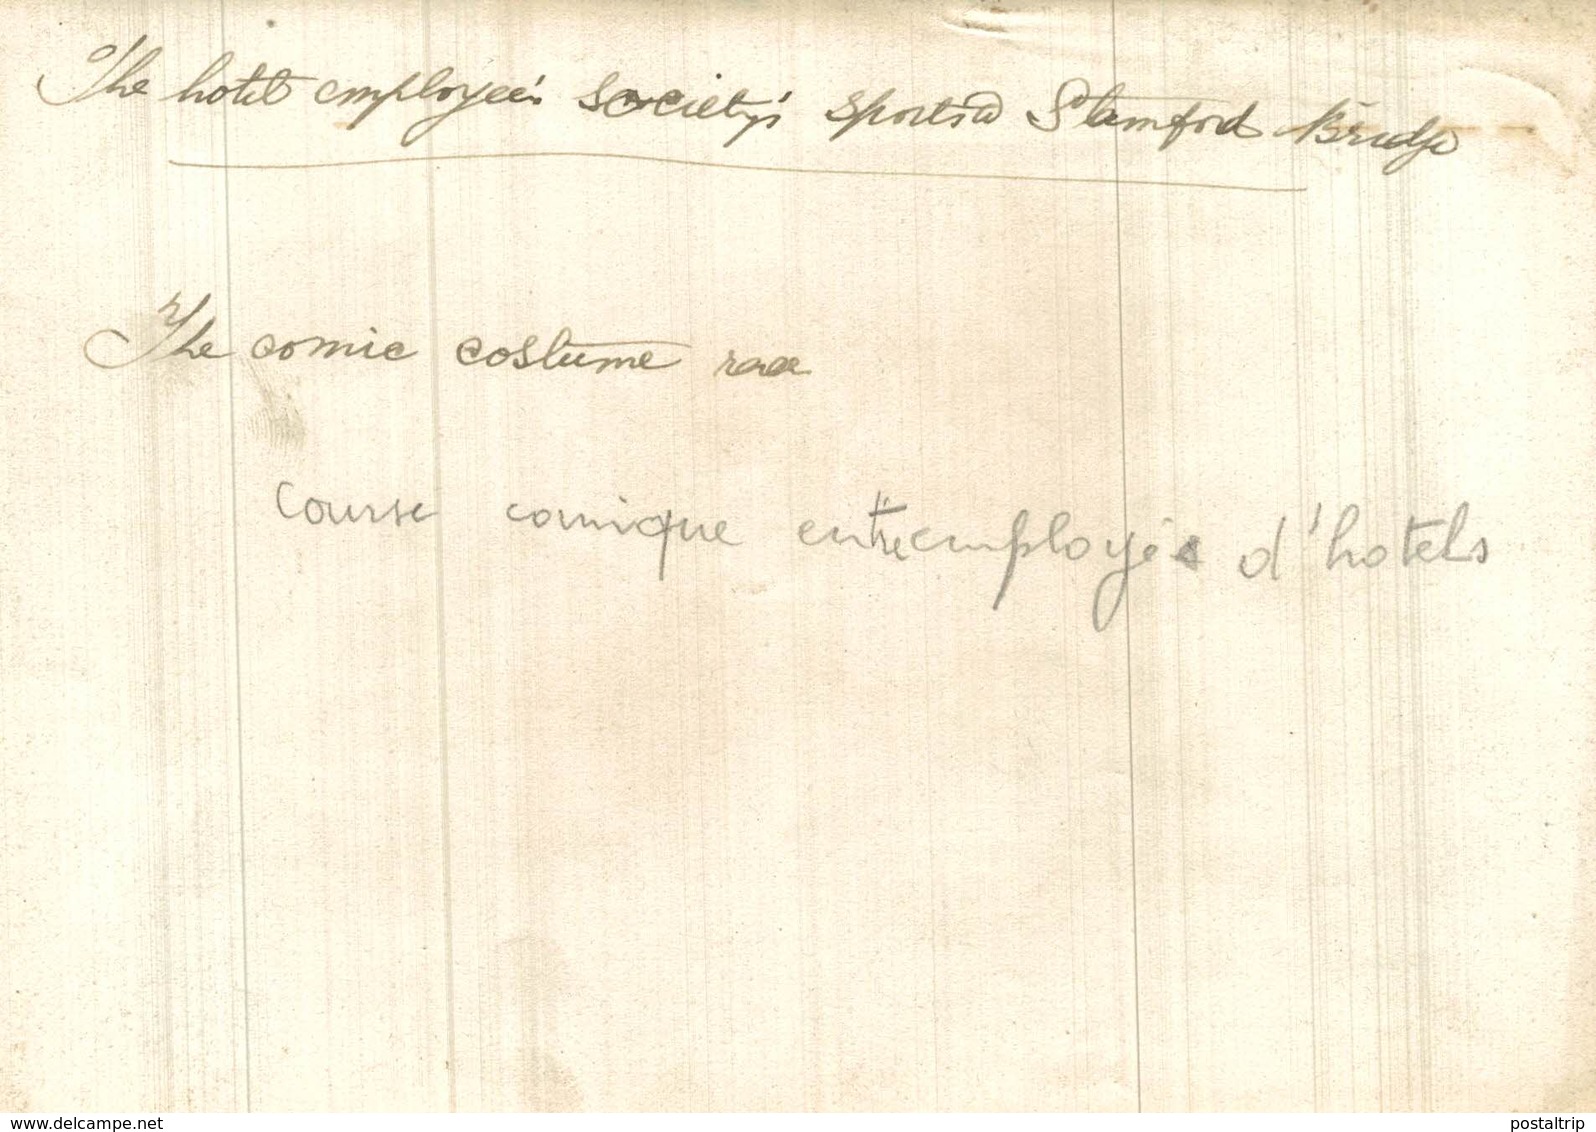 The hotel employee's society's sports @ Stamford Bridge
The comic costume race
Course comique entre employés d'hotels
www.delcampe.net
postaltrip